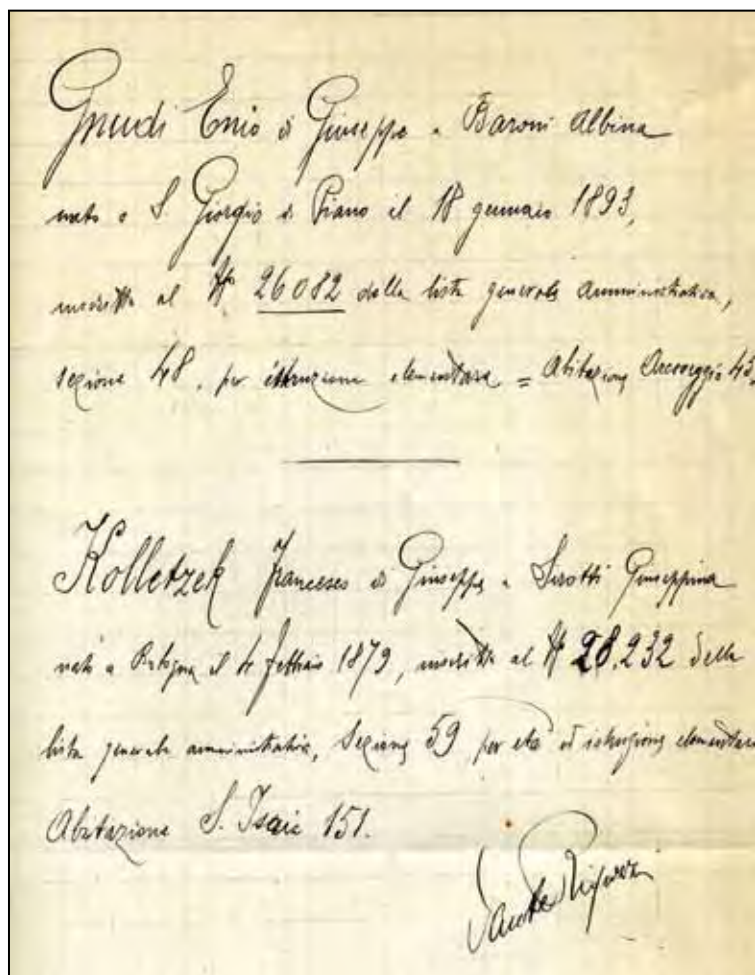 Gnudi Enio di Giuseppe e Baroni Albina
nato a S Giorgio di Piano il 18 gennaio 1893,
inscritto al N° 26082 della lista generale amministrativa,
sezione 48, per istruzione elementare = Abitazione Arcoveggio 45.
Kolletzek Francesco di Giuseppe e Sirotti Giuseppina
nato a Bologna il 4 febbraio 1879, inscritto al N 28.232 della
lista generale amministrativa, Sezione 59 per età ed istruzione elementare
Abitazione S. Isaia 151.